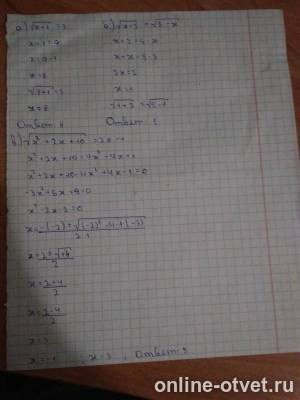 а) √x+1 = 3
x+1=9
x=9-1
x=8
√8+1 = 3
x=8
Ответ: 8
б) √x+3 = √5-x
x+3=5-x
x+x=5-3
2x=2
x=1
√1+3 = √5-1
Ответ: 1
в) √x²+2x+10 = 2x-1
x²+2x+10=4x²-4x+1
x²+2x+10-4x²+4x-1=0
-3x²+6x+9=0
x²-2x-3=0
x=-(-2)±√(-2)²-4·1·(-3)
2·1
x=2±√16
2
x=2+4
2
x=2-4
2
x=3
x=-1 , x=3 , Ответ: 3
online-otvet.ru